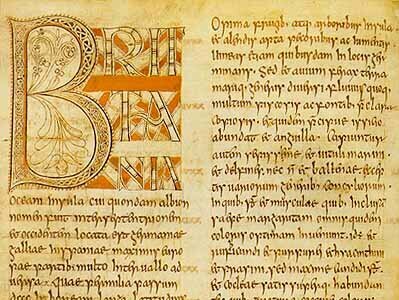 BRIT
TA
NIA
oceani insula cui quondam albion
nomen fuit inter septentrionem
et occidentem locata est germaniae
galliae hispaniae maximis euro
pae partibus multo interuallo ad
uersa. Quae per milia passuum
Opima frugib; atq; arboribus insula
et alendis apta pecoribus ac iumentis
uineas etiam quibusdam in locis ger
minans. Sed et auium ferax terra
mariq; generis diuersi. Fluuiis quoq;
multum piscosis ac fontib; praeclara
copiosis. et quidem praecipue issicio
abundat et anguilla. Capiuntur
autem saepissime et uituli marini
et delfines. nec non et ballenae. exceptis
uariorum generib; concyliorum
in quib; sunt et musculae quib; inclusam
saepe margaritam omnis quidem
coloris optimam inueniunt. id est
et rubicundi et purpurei et hyacinthini
et prasini. sed maxime candidi. Sunt
et cocleae satis superq; habundan